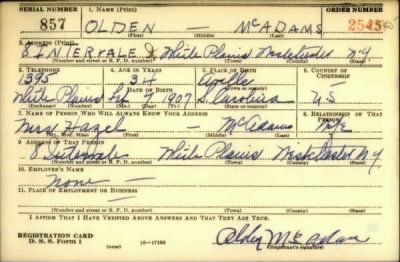 SERIAL NUMBER 1. NAME (Print) ORDER NUMBER
857 OLDEN — McADAMS 2545
(First) (Middle) (Last)
2. ADDRESS (Print)
8 INTERVALE White Plains Westchester N.Y.
(Number and street or R. F. D. number) (Town) (County) (State)
3. TELEPHONE 4. AGE IN YEARS 5. PLACE OF BIRTH 6. COUNTRY OF CITIZENSHIP
1395 34
White Plains DATE OF BIRTH Feb 7 1907 S. Carolina U.S.
(Exchange) (Number) (Mo.) (Day) (Yr.) (Town) (County) (State or country)
7. NAME OF PERSON WHO WILL ALWAYS KNOW YOUR ADDRESS 8. RELATIONSHIP OF THAT PERSON
Mrs Hazel — McAdams
(Mr., Mrs., Miss) (First) (Middle) (Last)
9. ADDRESS OF THAT PERSON
8 Intervale White Plains Westchester N.Y.
(Number and street or R. F. D. number) (Town) (County) (State)
10. EMPLOYER'S NAME
None —
11. PLACE OF EMPLOYMENT OR BUSINESS
—
(Number and street or R. F. D. number) (Town) (County) (State)
I AFFIRM THAT I HAVE VERIFIED ABOVE ANSWERS AND THAT THEY ARE TRUE.
REGISTRATION CARD
D. S. S. Form 1 (over) 16—17105 Olden McAdams
(Registrant's signature)